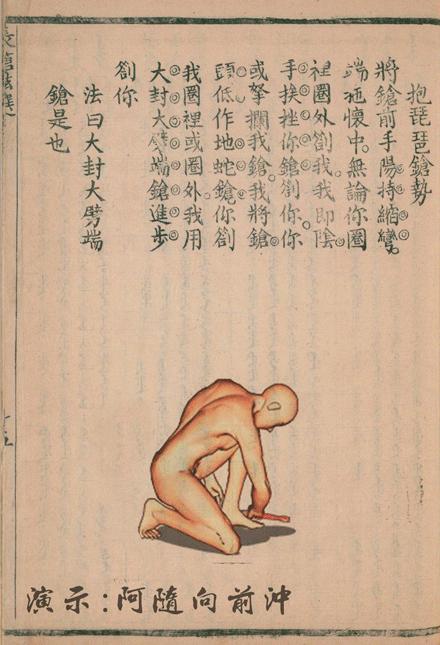 抱琵琶鎗勢
將鎗前手陽持縮彎
端拖懷中無論你圈
裡圈外劄我我即陰
手挨拄你鎗劄你你
或拏攔我鎗我將鎗
頭低作地蛇鎗你劄
我圈裡或圈外我用
大封大劈端鎗進步
劄你
法曰大封大劈端
鎗是也
十五
演示:阿隨向前沖